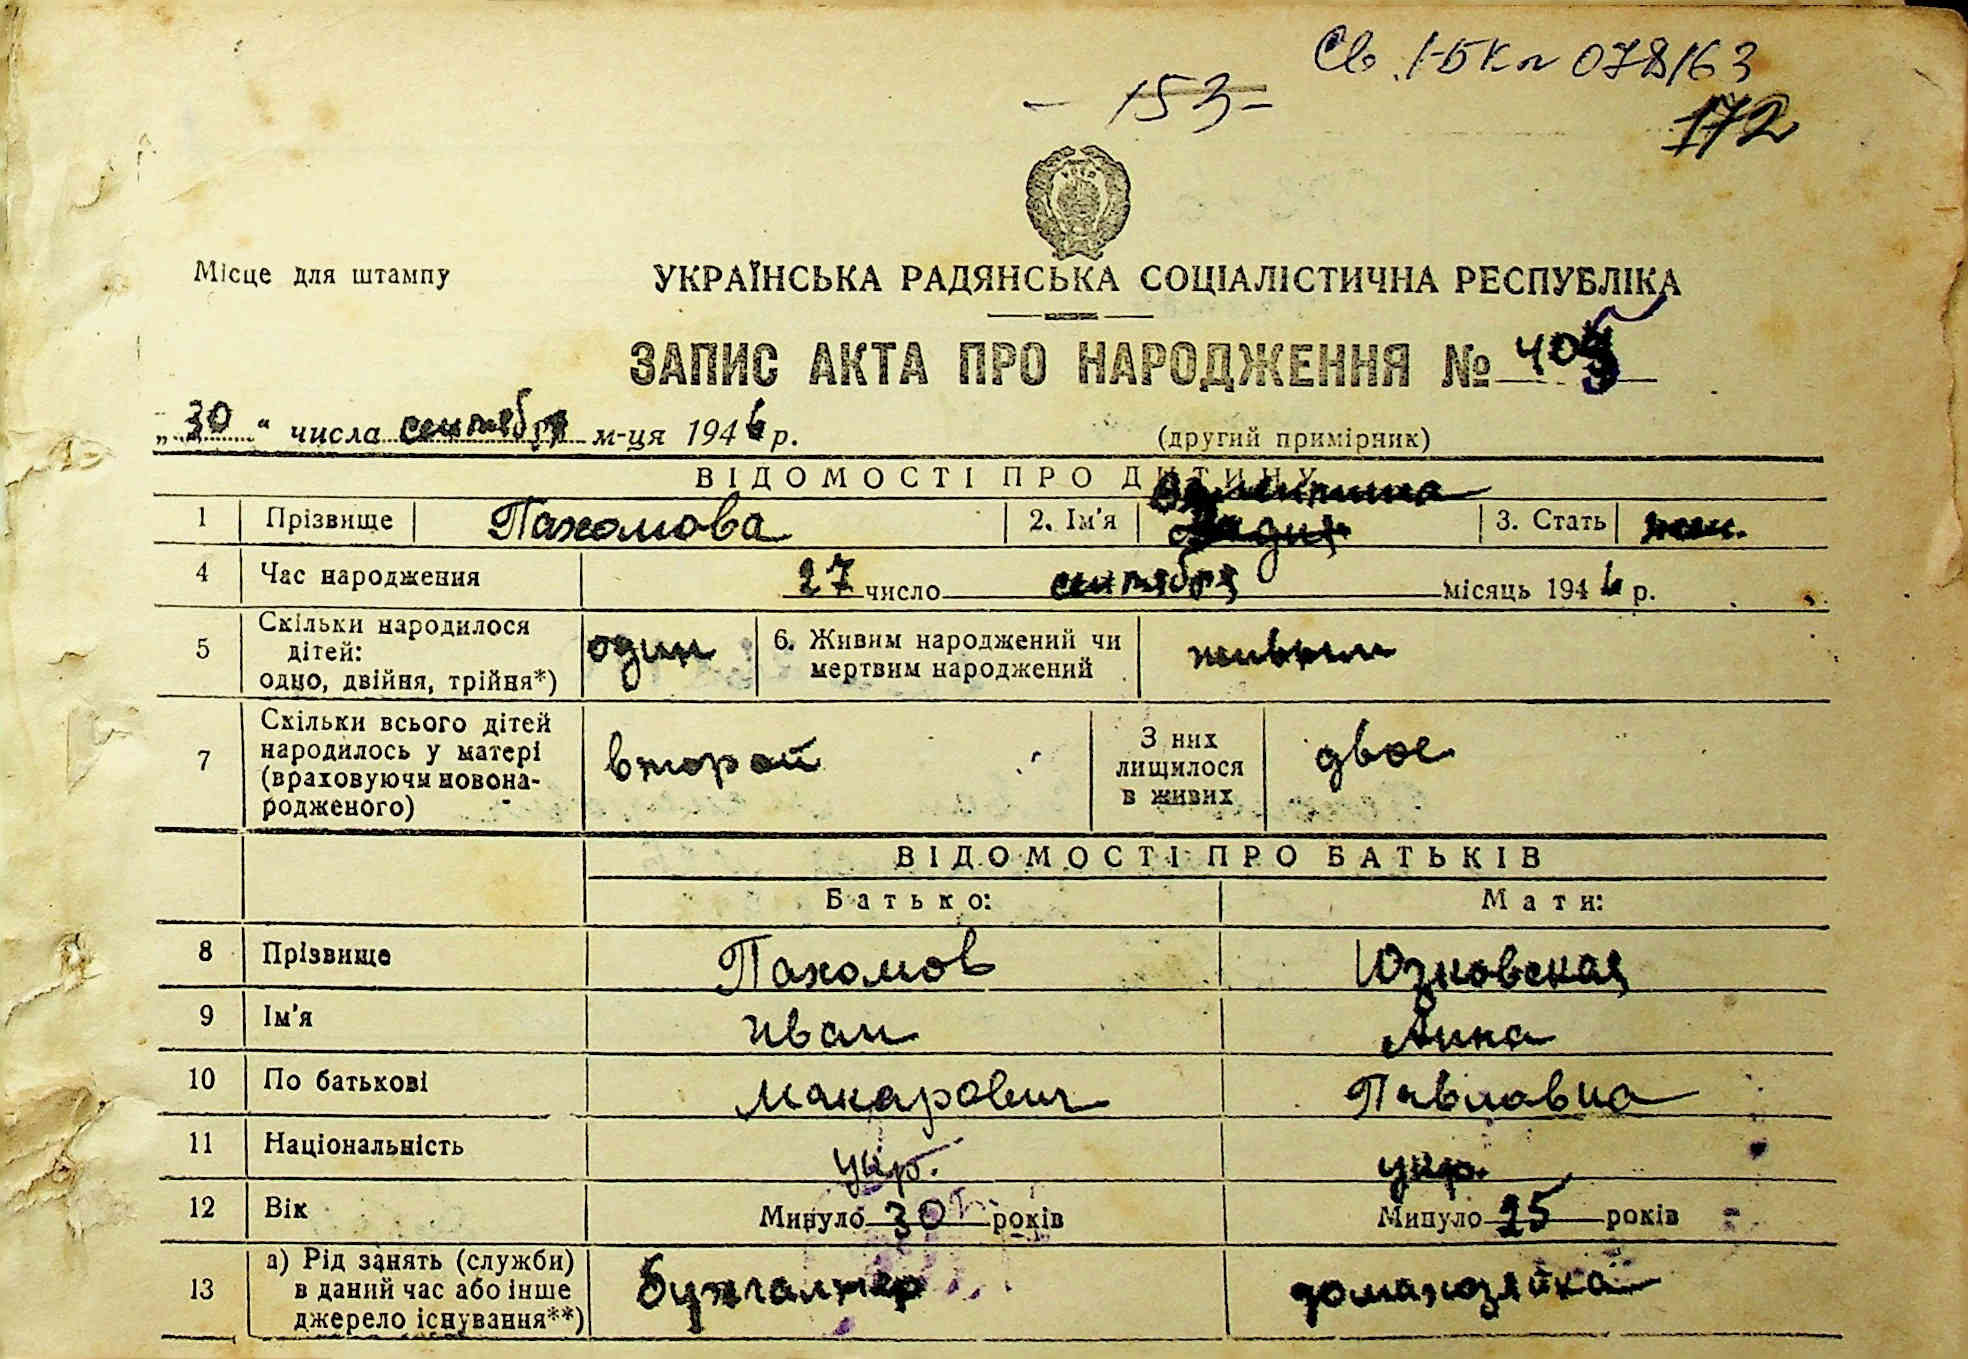 Св. I-БК № 078163
- 153 -
172
Місце для штампу
УКРАЇНСЬКА РАДЯНСЬКА СОЦІАЛІСТИЧНА РЕСПУБЛІКА
ЗАПИС АКТА ПРО НАРОДЖЕННЯ №
„30“ числа сентября м-ця 1946 р. (другий примірник)
ВІДОМОСТІ ПРО ДИТИНУ
1 Прізвище Пахомова 2. Ім'я Валентина 3. Стать жен.
4 Час народження 27 число сентября місяць 1946 р.
5 Скільки народилося дітей: одно, двійня, трійня*) один 6. Живим народжений чи мертвим народжений живым
7 Скільки всього дітей народилось у матері (враховуючи новонародженого) второй З них лищилося в живих двое
ВІДОМОСТІ ПРО БАТЬКІВ
Батько: Мати:
8 Прізвище Пахомов Юзковская
9 Ім'я Иван Анна
10 По батькові Макарович Павловна
11 Національність укр. укр.
12 Вік Минуло 30 років Минуло 25 років
13 а) Рід занять (служби) в даний час або інше джерело існування**) бухгалтер домахозяйка